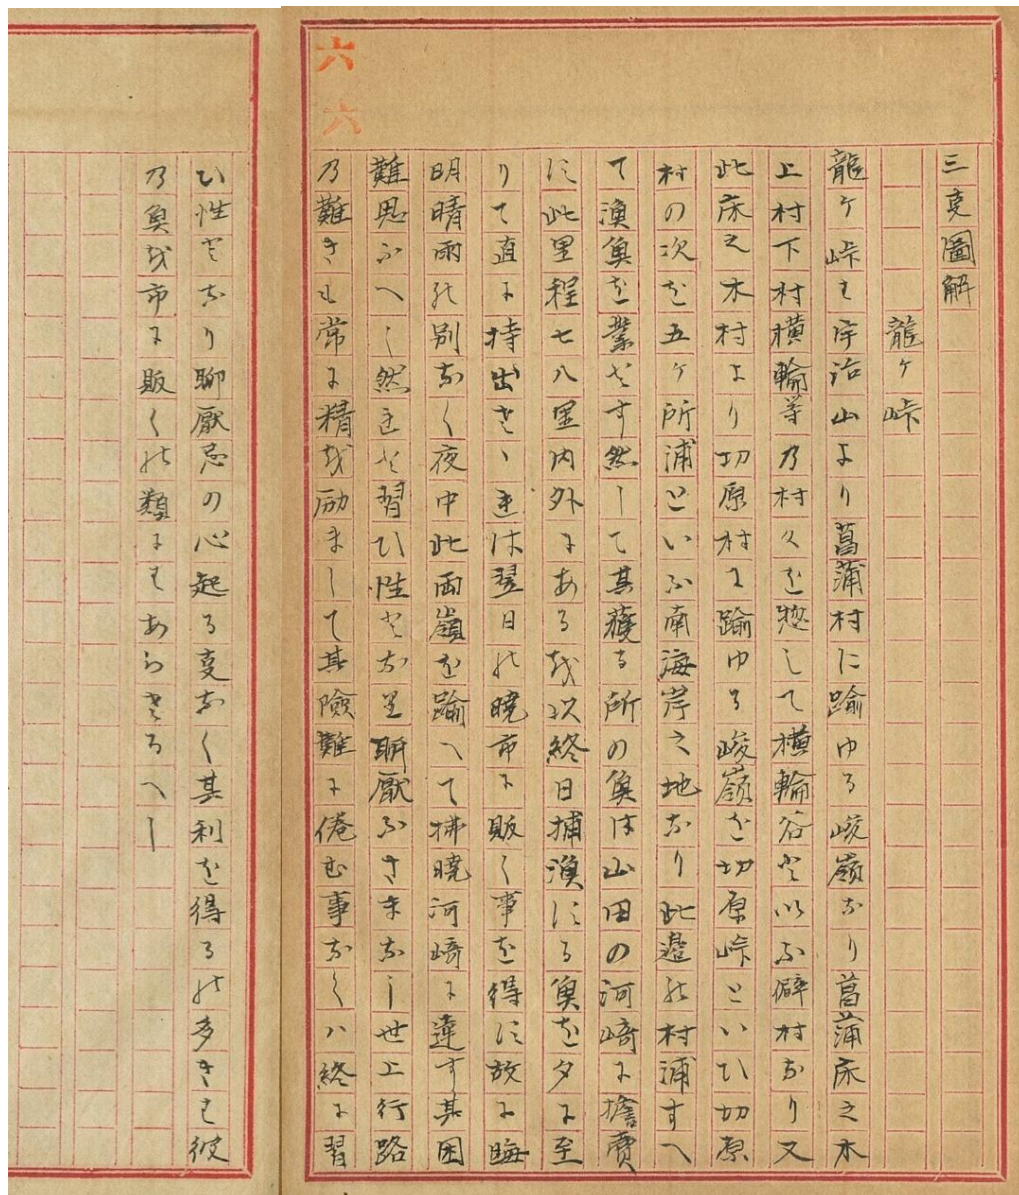 六
六
三更圖解
龍ケ峠
龍ケ峠も宇治山より菖蒲村に踰ゆる峻嶺なり菖蒲床之木
上村下村横輪等乃村々を惣して横輪谷と以ふ僻村なり又
此床之木村より切原村に踰ゆる峻嶺を切原峠といひ切原
村の次を五ケ所浦といふ南海岸之地なり此邉の村浦すへ
て漁魚を業とす然して其獲る所の魚は山田の河崎に擔賣
に此里程七八里内外にある越以終日捕漁にる魚を夕に至
りて直に持出さゝれは翌日の暁市に販く事を得に故に晦
明晴雨の別なく夜中此両嶺を踰へて拂暁河崎に達す其困
難思ふへし然れと習ひ性となれ聊厭ふさまなし世上行路
乃難きも常に精越励まして其險難に倦む事なくハ終に習
ひ性となり聊厭忌の心起る事なく其利を得るの多きも彼
乃魚越市に販くの類にもあらさるへし